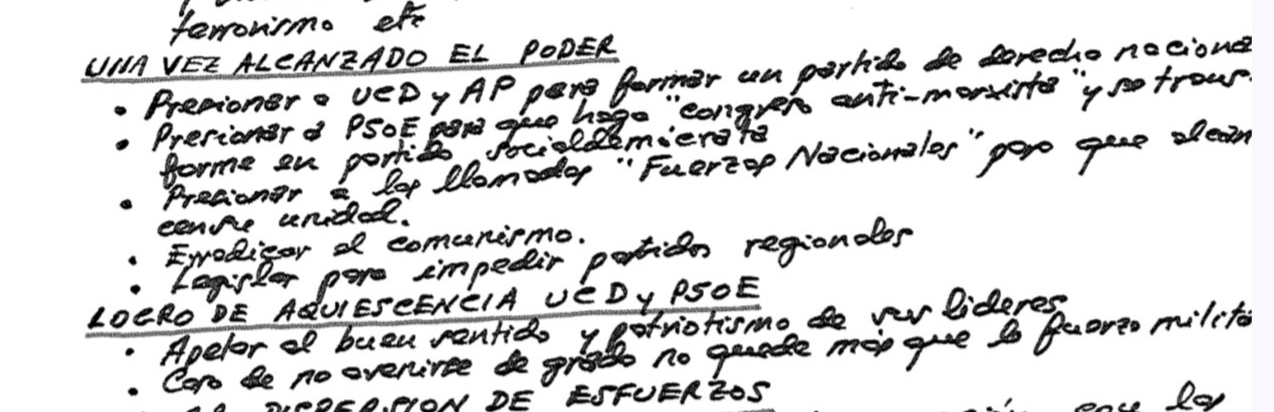 terrorismo etc
UNA VEZ ALCANZADO EL PODER
• Presionar a UCD y AP para formar un partido de derecha naciona
• Presionar a PSOE para que haga "congreso anti-marxista" y se trans-
forme en partido socialdemócrata
• Presionar a los llamados "Fuerzas Nacionales" para que alcan
cen su unidad.
• Erradicar el comunismo.
• Legislar para impedir partidos regionales
LOGRO DE AQUIESCENCIA UCD y PSOE
• Apelar al buen sentido y patriotismo de sus lideres
• Caso de no avenirse de grado no quede más que la fuerza milita
DISPERSION DE ESFUERZOS
que las